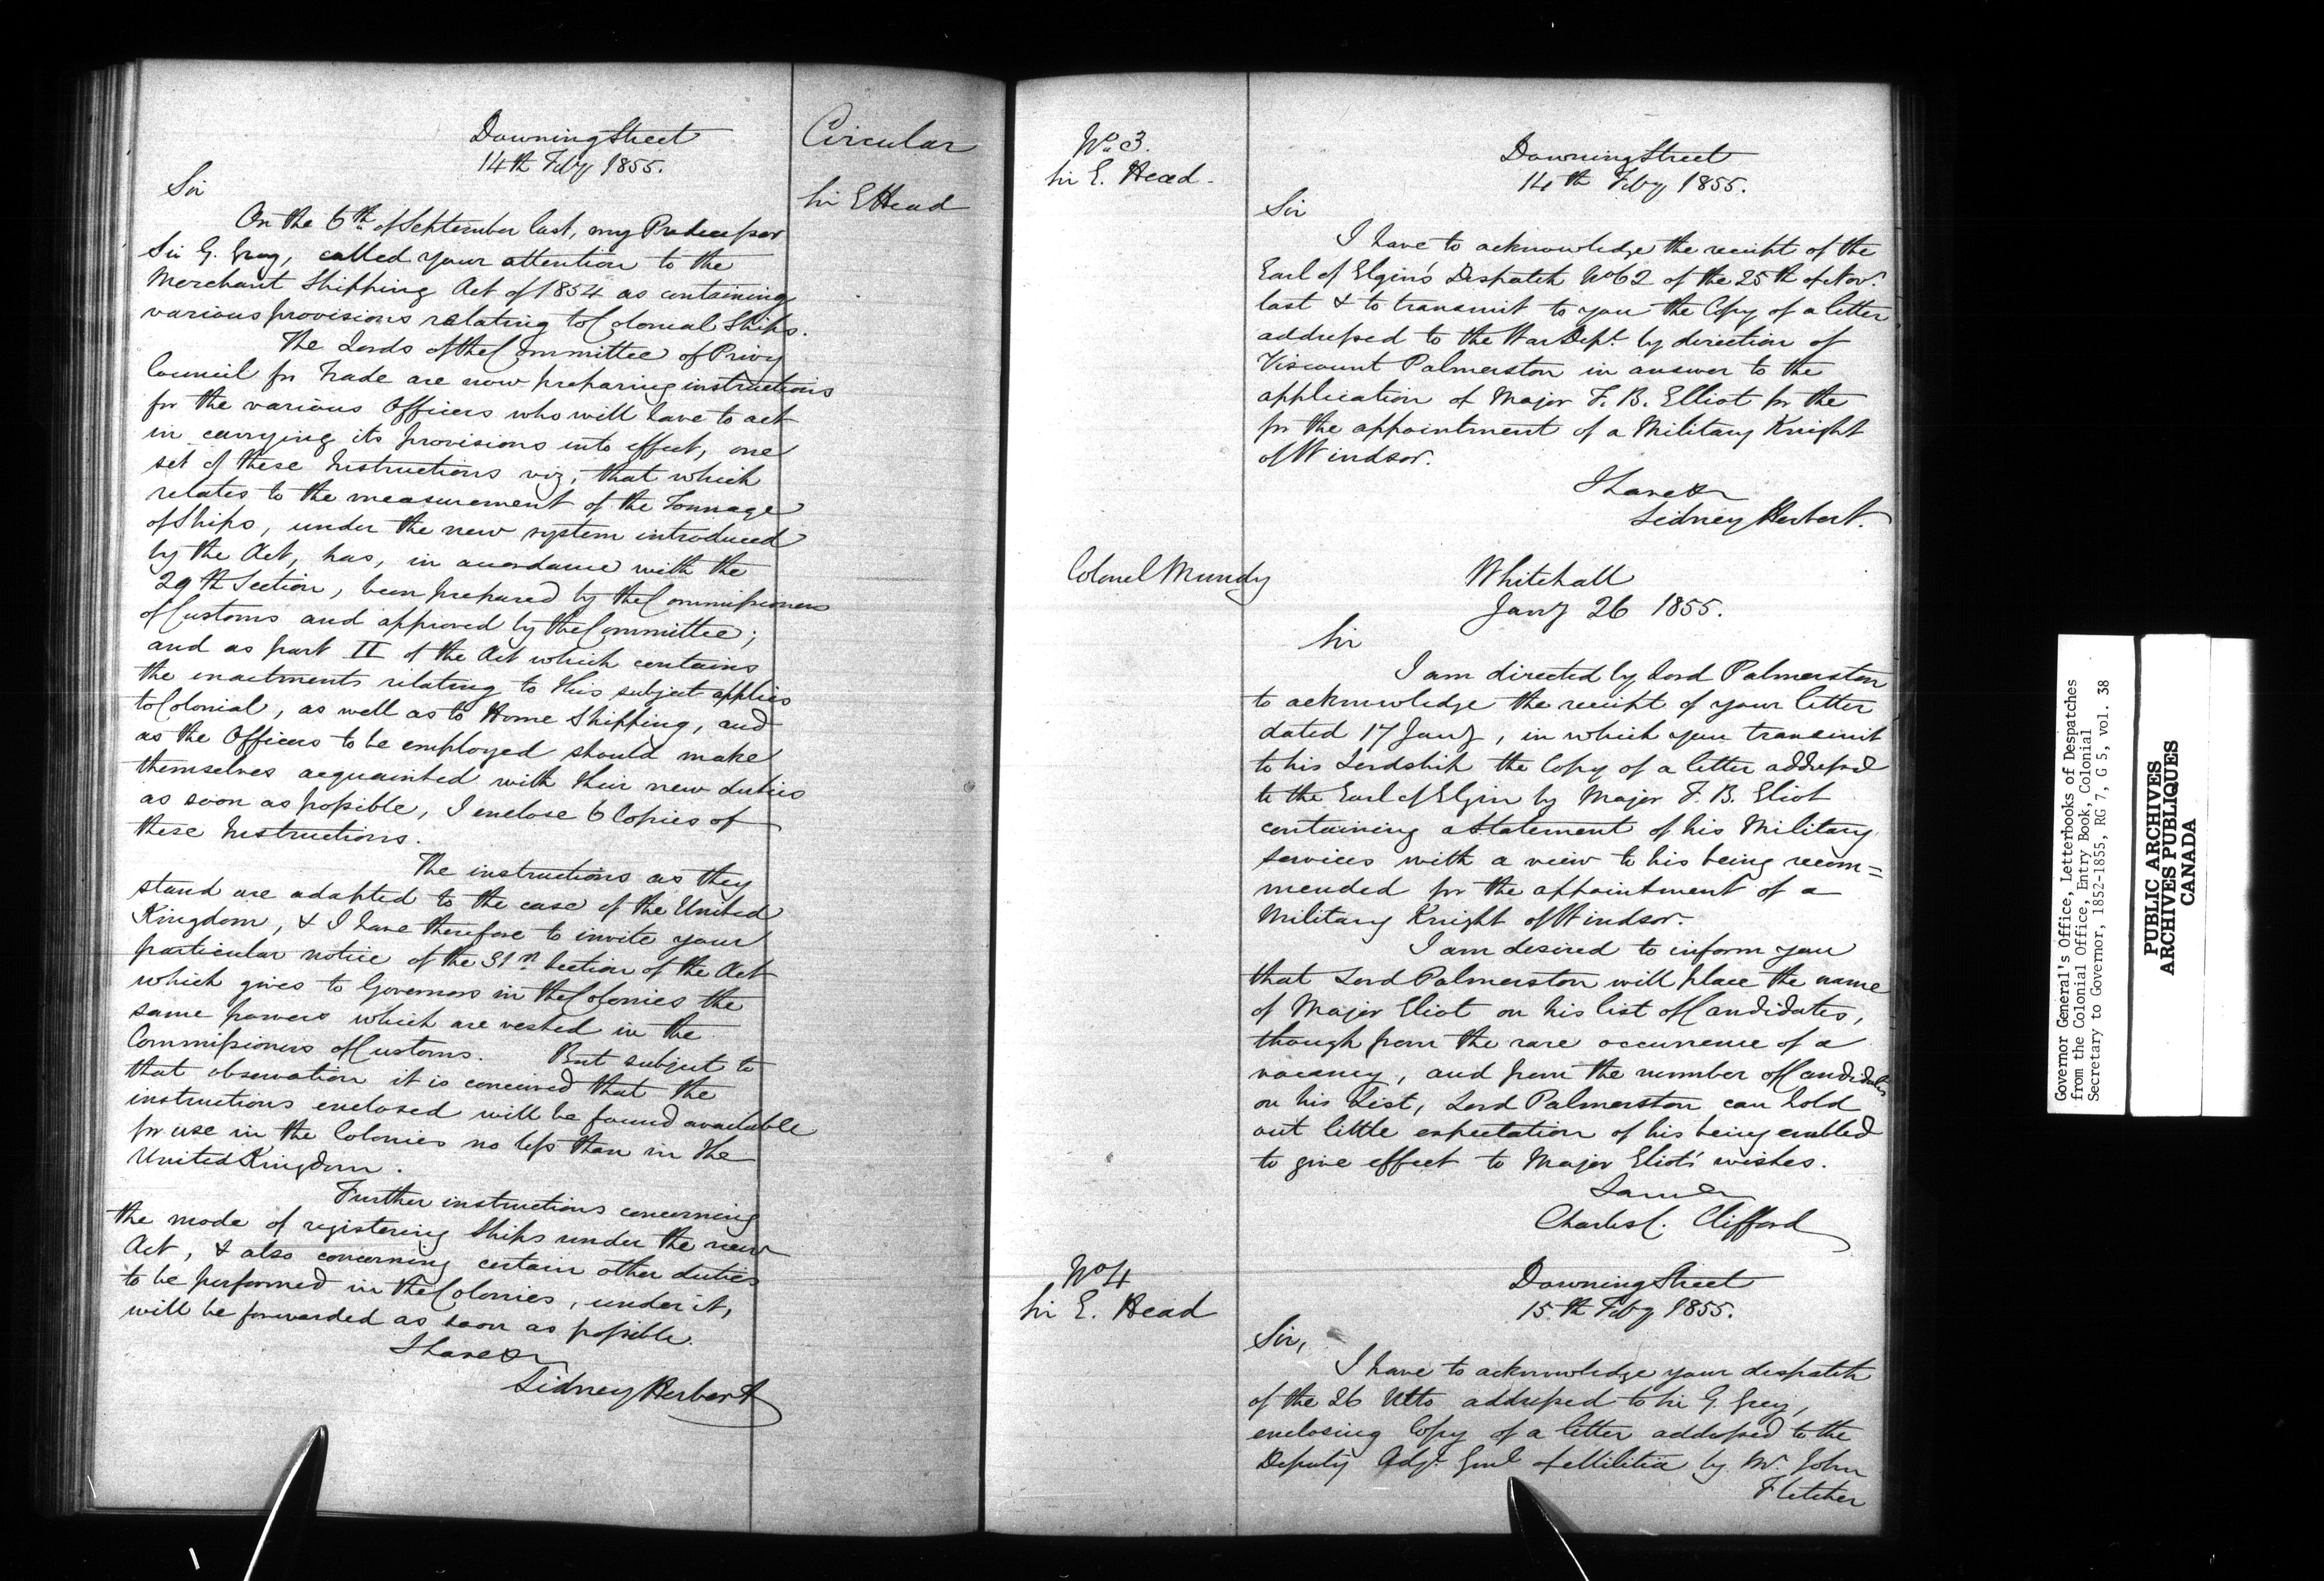 Circular
Sir E Head
Downing Street
14th Feby 1855.
Sir
On the 6th of September last, my Predecessor
Sir G. Grey, called your attention to the
Merchant Shipping Act of 1854 as containing
various provisions relating to Colonial Ships.
The Lords of the Committee of Privy
Council for Trade are now preparing instructions
for the various Officers who will have to act
in carrying its provisions into effect, one
set of these Instructions viz, that which
relates to the measurement of the Tonnage
of Ships, under the new system introduced
by the Act, has, in accordance with the
29th Section, been prepared by the Commissioners
of Customs and approved by the Committee;
and as part II of the Act which contains
the enactments relating to this subject applies
to Colonial, as well as to Home Shipping, and
as the Officers to be employed should make
themselves acquainted with their new duties
as soon as possible, I enclose 6 Copies of
these Instructions.
The instructions as they
stand are adapted to the case of the United
Kingdom, & I have therefore to invite your
particular notice of the 31st Section of the Act
which gives to Governors in the Colonies the
same powers which are vested in the
Commissioners of Customs. But subject to
that observation it is conceived that the
instructions enclosed will be found available
for use in the Colonies no less than in the
United Kingdom.
Further instructions concerning
the mode of registering Ships under the new
Act, & also concerning certain other duties
to be performed in the Colonies, under it,
will be forwarded as soon as possible.
I have &c
Sidney Herbert
No 3.
Sir E. Head.
Downing Street
14th Feby 1855.
Sir
I have to acknowledge the receipt of the
Earl of Elgin's Despatch No 62 of the 25th of Nov.
last & to transmit to you the Copy of a letter
addressed to the War Dept. by direction of
Viscount Palmerston in answer to the
application of Major F. B. Elliot for the
for the appointment of a Military Knight
of Windsor.
I have &c
Sidney Herbert.
Colonel Mundy
Whitehall
Jany 26 1855.
Sir
I am directed by Lord Palmerston
to acknowledge the receipt of your letter
dated 17 Jany, in which you transmit
to his Lordship the Copy of a letter addressed
to the Earl of Elgin by Major F. B. Eliot
containing a Statement of his Military
Services with a view to his being recom=
mended for the appointment of a
Military Knight of Windsor.
I am desired to inform you
that Lord Palmerston will place the name
of Major Eliot on his list of Candidates,
though from the rare occurrence of a
vacancy, and from the number of Candidates
on his List, Lord Palmerston can hold
out little expectation of his being enabled
to give effect to Major Eliot's wishes.
I am &c
Charles C. Clifford
No 4
Sir E. Head
Downing Street
15th Feby 1855.
Sir,
I have to acknowledge your despatch
of the 26 Ulto addressed to Sir G. Grey,
enclosing Copy of a letter addressed to the
Deputy Adjt. Genl of Militia by Mr. John
Fletcher
Governor General's Office, Letterbooks of Despatches
from the Colonial Office, Entry Book, Colonial
Secretary to Governor, 1852-1855, RG 7, G 5, vol. 38
PUBLIC ARCHIVES
ARCHIVES PUBLIQUES
CANADA